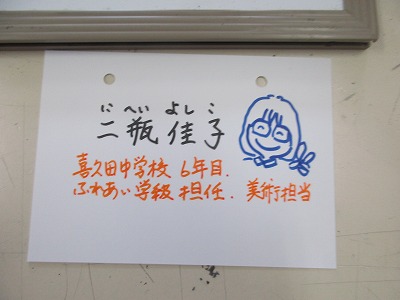 にへい よしこ
二瓶 佳子
喜久田中学校 6年目.
ふれあい学級 担任. 美術担当